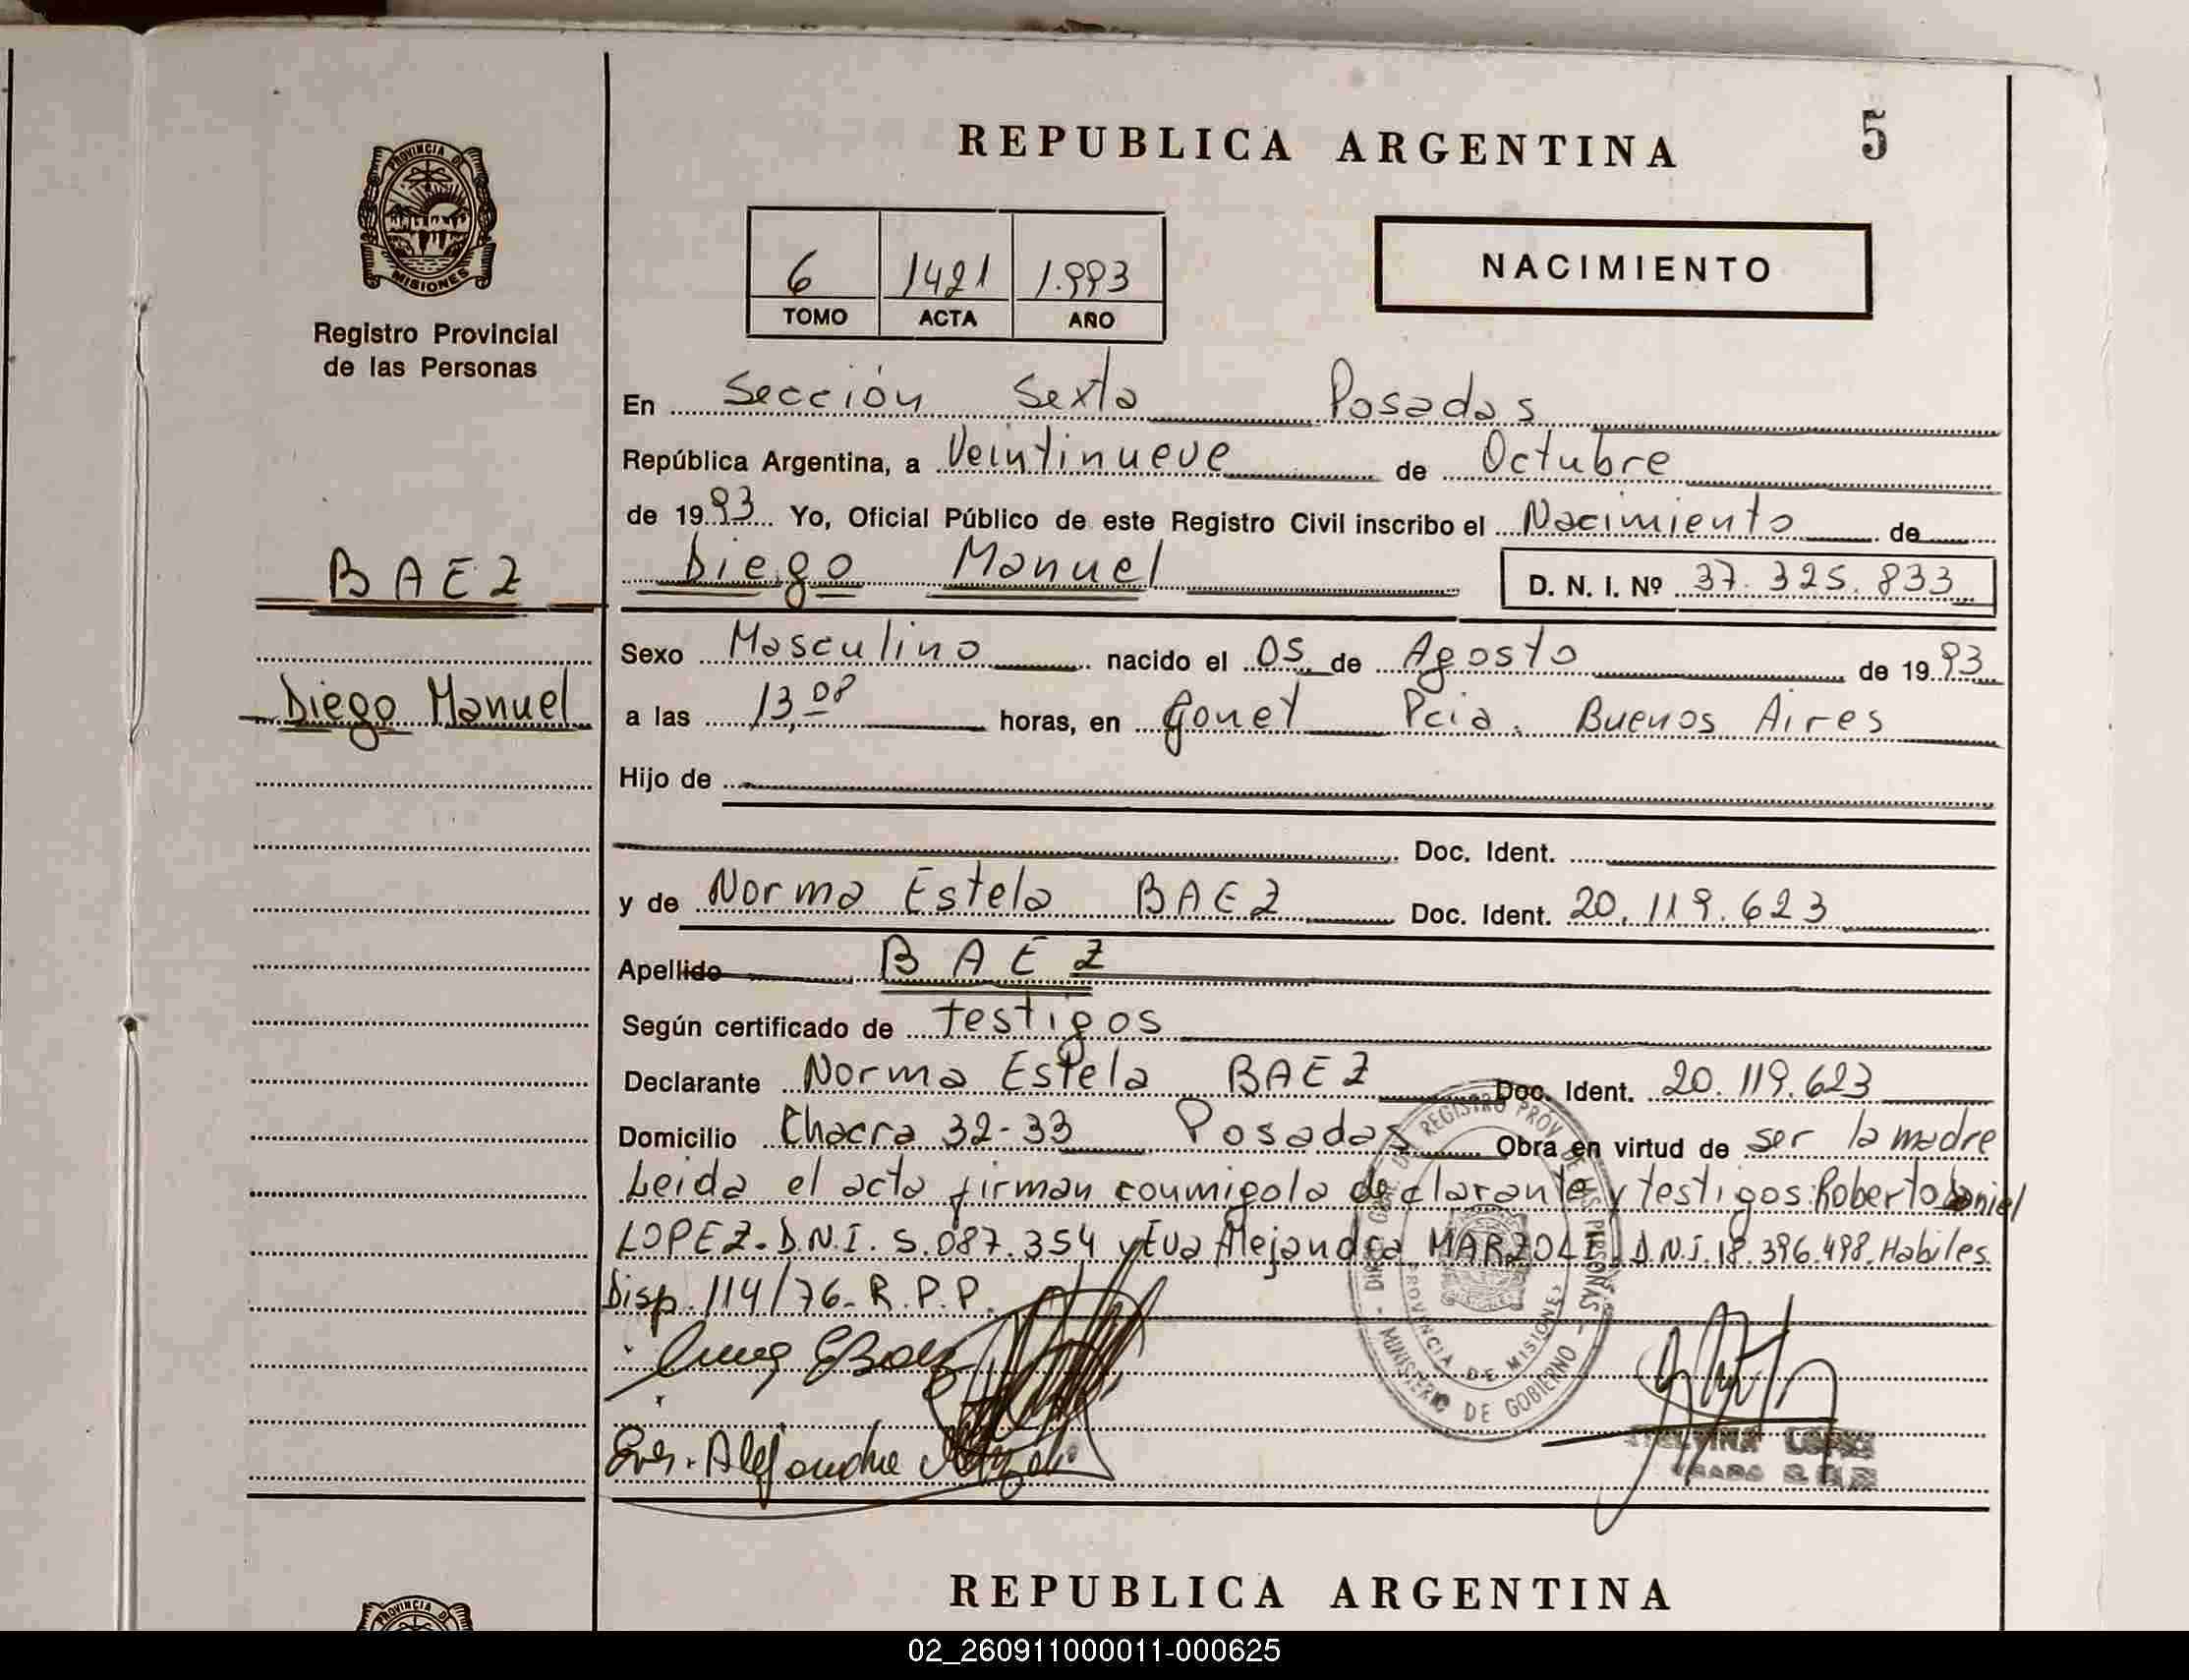 REPUBLICA ARGENTINA
5
PROVINCIA DE
MISIONES
Registro Provincial
de las Personas
6 1421 1.993
TOMO ACTA AÑO
NACIMIENTO
En Sección Sexta Posadas
República Argentina, a Veintinueve de Octubre
de 1993 Yo, Oficial Público de este Registro Civil inscribo el Nacimiento de
BAEZ
Diego Manuel D. N. I. Nº 37.325.833
Sexo Masculino nacido el 05 de Agosto de 1993
Diego Manuel
a las 13,08 horas, en Gonet Pcia. Buenos Aires
Hijo de
Doc. Ident.
y de Norma Estela BAEZ Doc. Ident. 20.119.623
Apellido BAEZ
Según certificado de testigos
Declarante Norma Estela BAEZ Doc. Ident. 20.119.623
Domicilio Chacra 32-33 Posadas Obra en virtud de ser la madre
Leida el acta firman conmigola declarante y testigos: Roberto Daniel
LOPEZ. D.N.I. 5.087.354 y Eva Alejandra MARZOLI. D.N.I. 18.396.498. Habiles
Disp. 114/76- R.P.P.
REGISTRO PROV. DE LAS PERSONAS
MINISTERIO DE GOBIERNO
PROVINCIA DE MISIONES
Eva Alejandra
LOPEZ
REPUBLICA ARGENTINA
PROVINCIA D
02_260911000011-000625